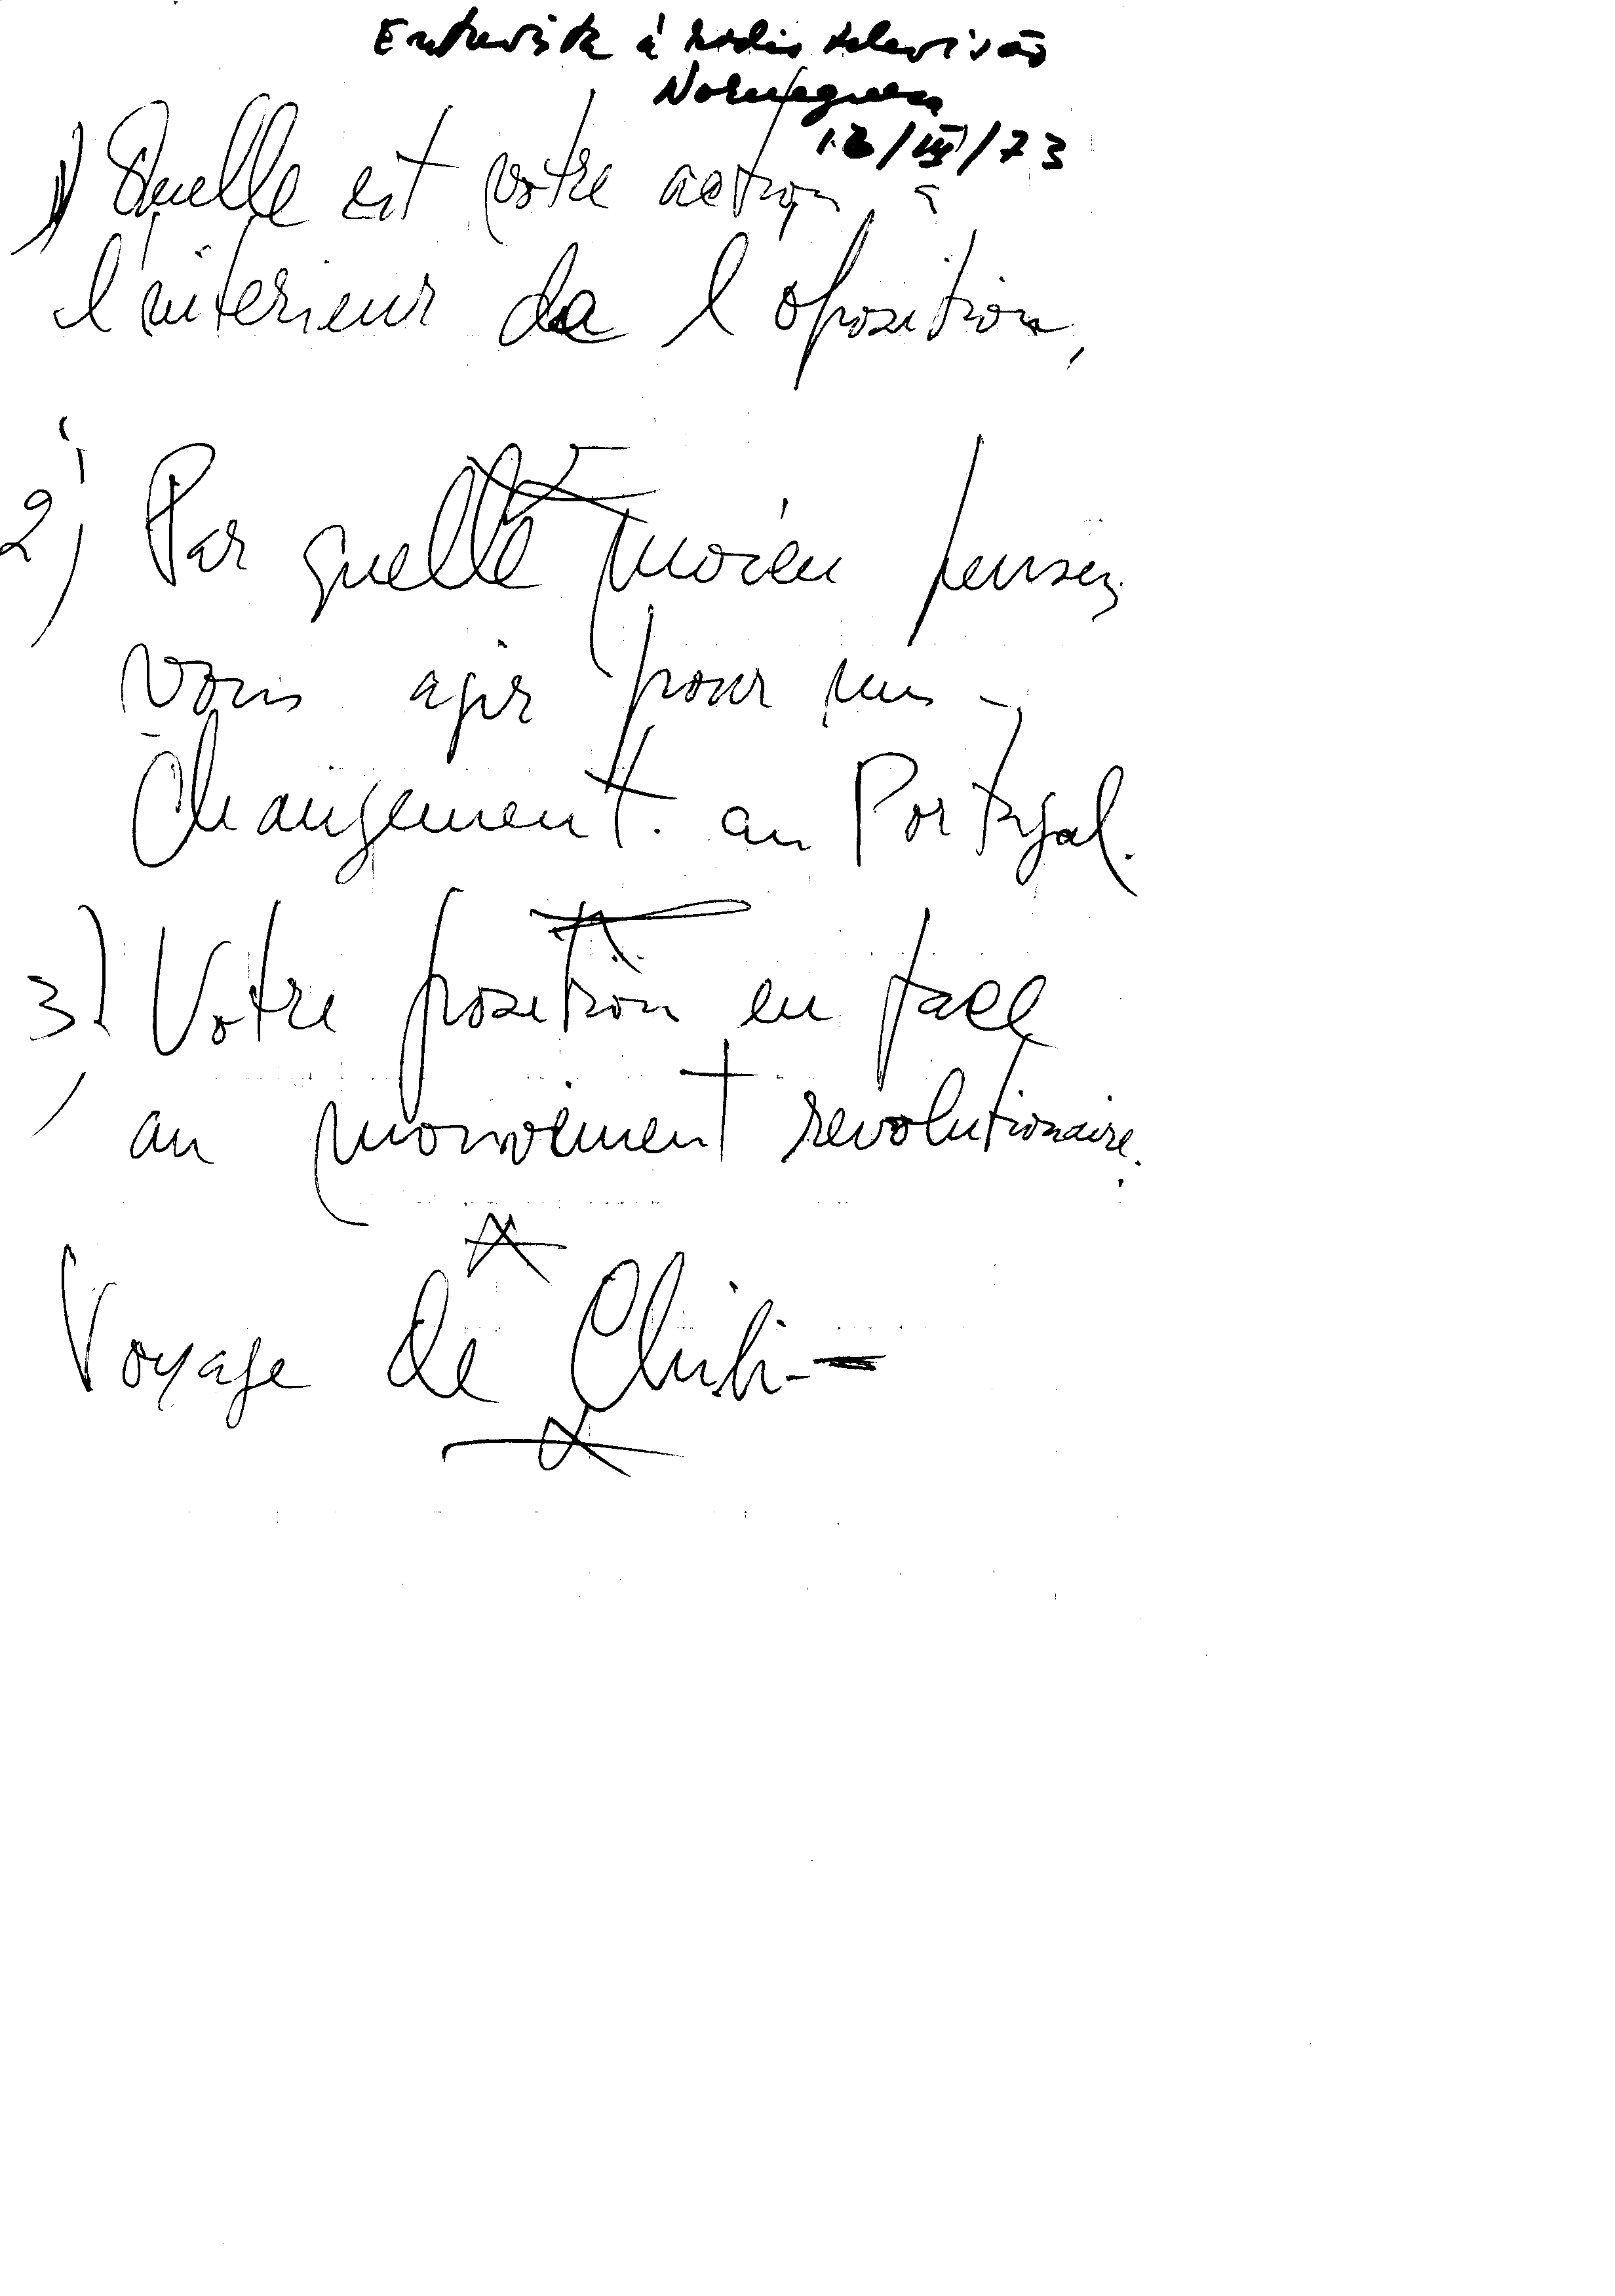 Entrevista á rádio televisão
Norueguesa
12/III/73
1) Quelle est votre action à
l'interieur de l'oposition,
2) Par quelle moien pensez
vous agir pour un
changement. au Portugal.
3) Votre position en face
au mouvement revolutionaire.
Voyage de Chili -